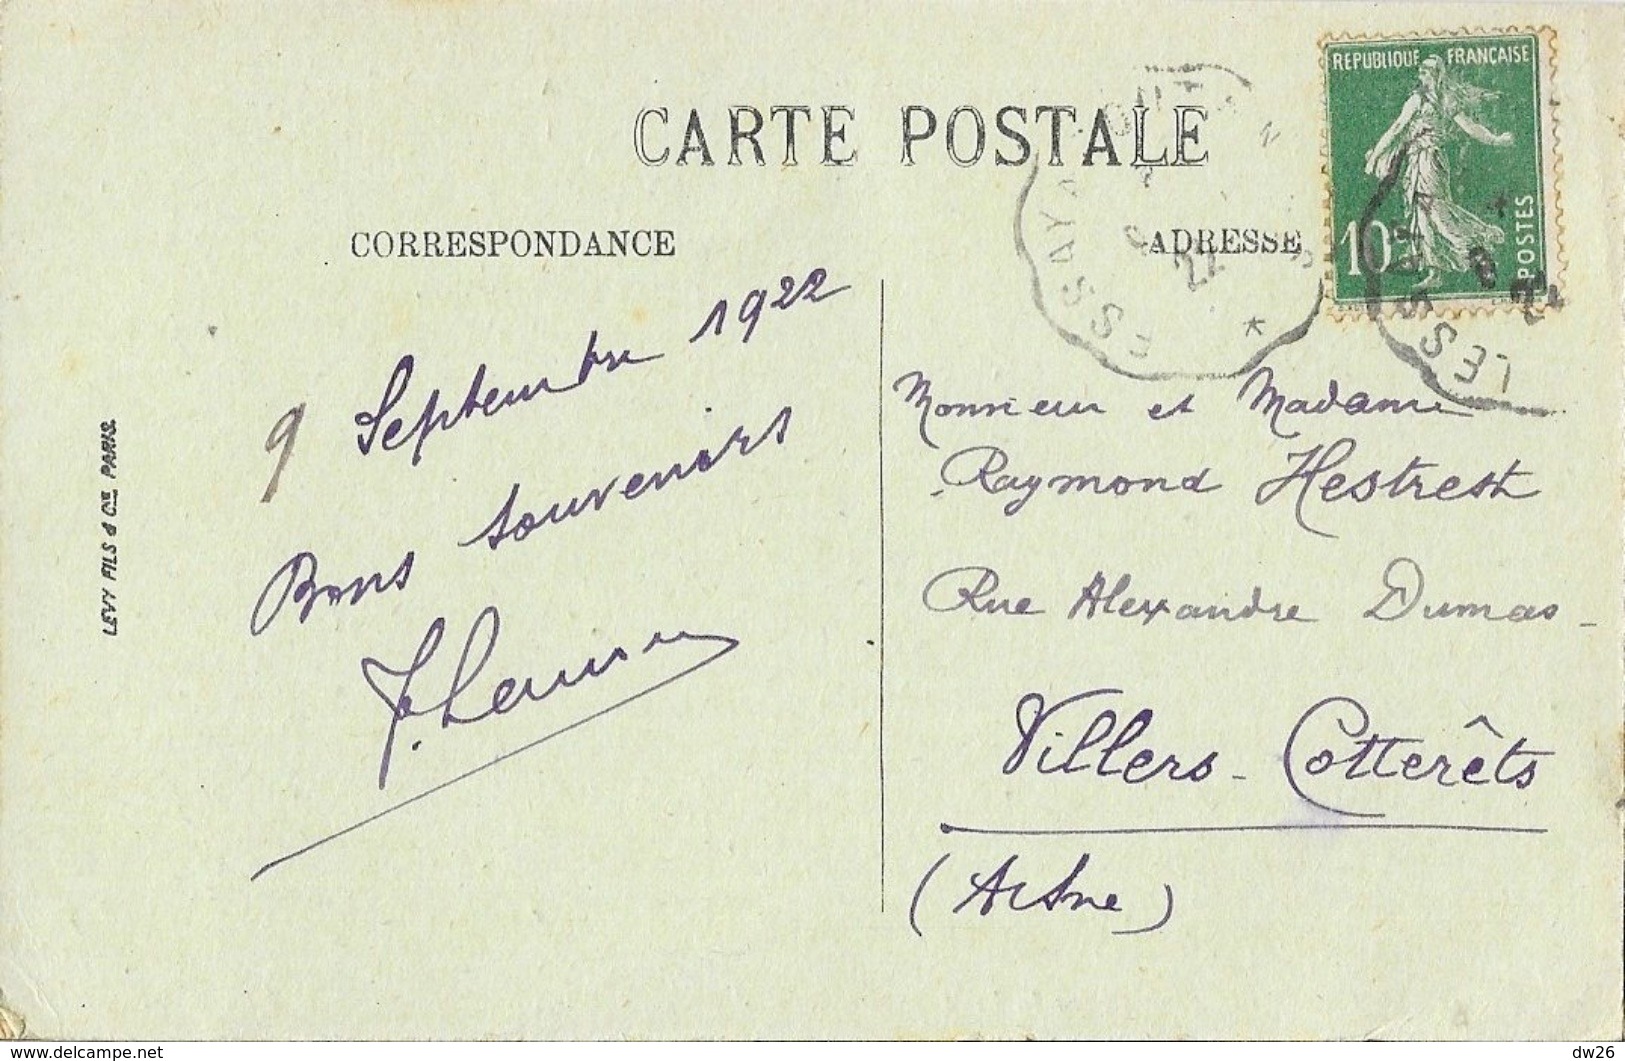 CARTE POSTALE
CORRESPONDANCE
ADRESSE
REPUBLIQUE FRANÇAISE
10c
POSTES
22
LES
9 Septembre 1922
Bons souvenirs
LEVY FILS & Cie PARIS
Monsieur et Madame
Raymond Hestrest
Rue Alexandre Dumas
Villers-Cotterêts
(Aisne)
delcampe.net
dw26